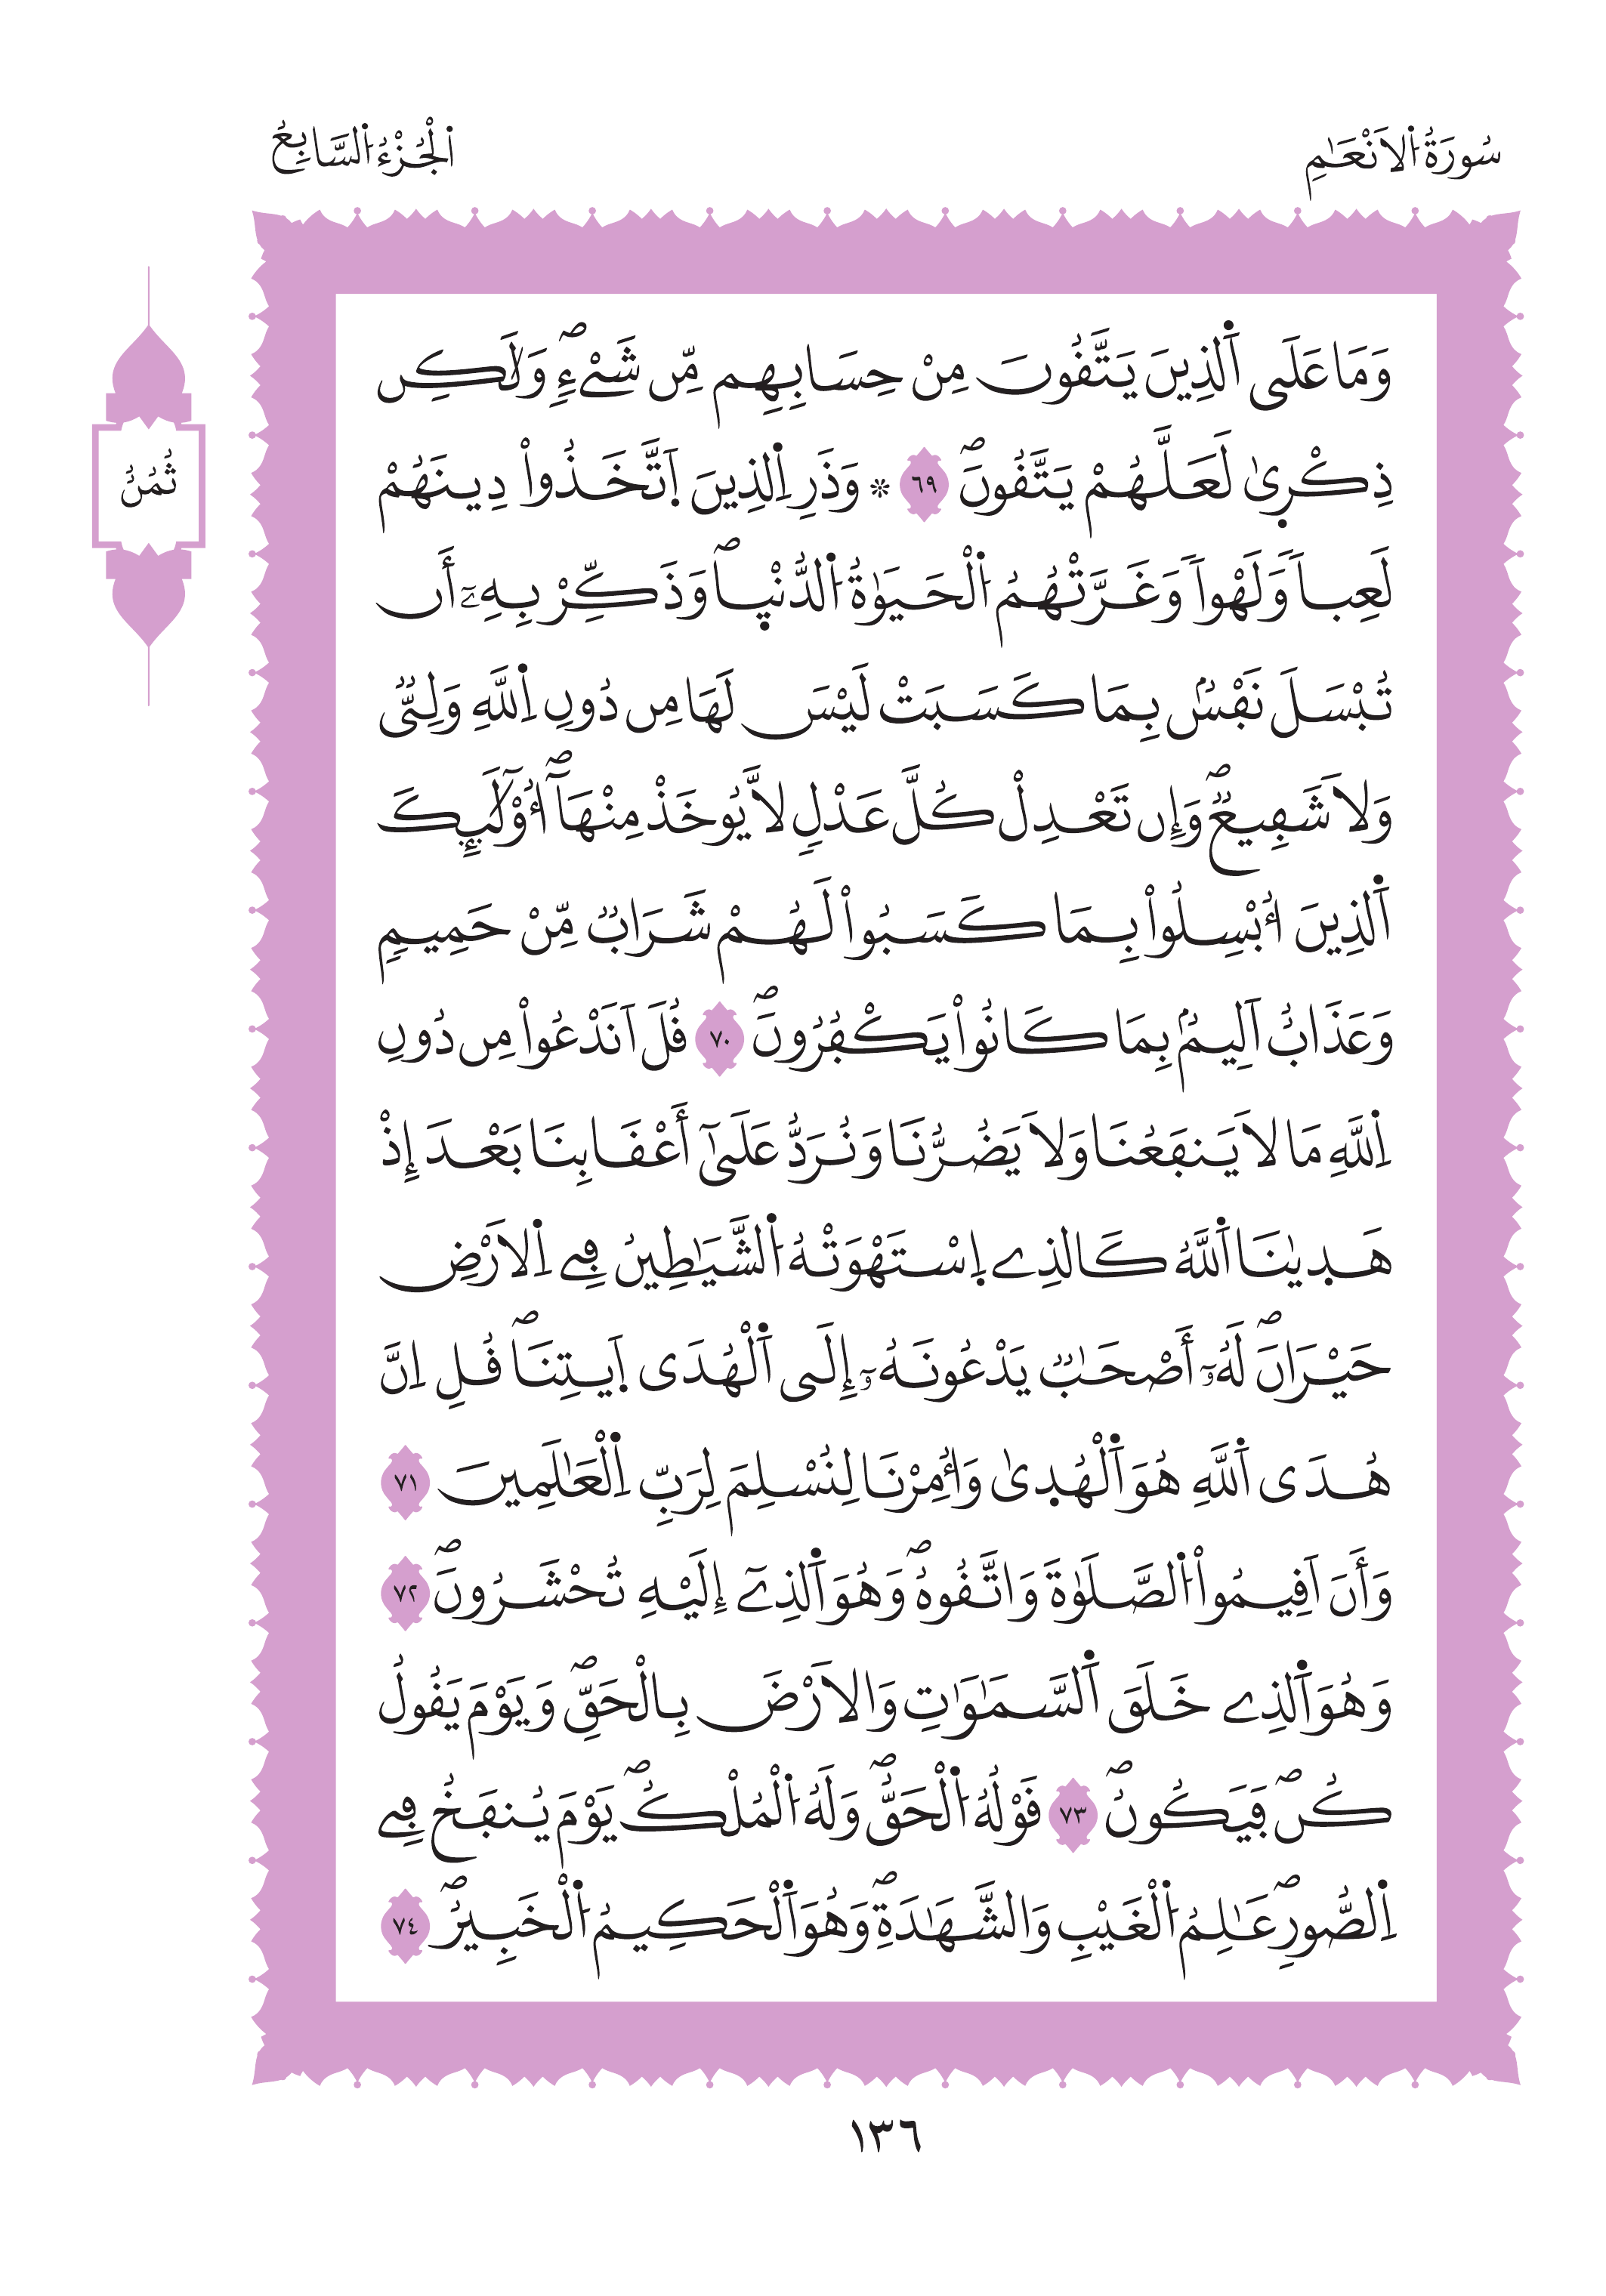 سُورَةُ اُ۬لَانْعَٰمِ
اُ۬لْجُزْءُ اُ۬لسَّابِعُ
ثُمُنُ
وَمَا عَلَى اَ۬لذِينَ يَتَّقُونَ مِنْ حِسَابِهِم مِّن شَےْءٖۖ وَلَٰكِن
ذِكْر۪ىٰ لَعَلَّهُمْ يَتَّقُونَۖ ٦٩ ۞ وَذَرِ اِ۬لذِينَ اَ۪تَّخَذُواْ دِينَهُمْ
لَعِباٗ وَلَهْواٗ وَغَرَّتْهُمُ اُ۬لْحَيَوٰةُ اُ۬لدُّنْي۪اۖ وَذَكِّرْ بِهِۦٓ أَن
تُبْسَلَ نَفْسُۢ بِمَا كَسَبَتْ لَيْسَ لَهَا مِن دُونِ اِ۬للَّهِ وَلِيّٞ
وَلَا شَفِيعٞۖ وَإِن تَعْدِلْ كُلَّ عَدْلٖ لَّا يُوخَذْ مِنْهَآۖ أُوْلَٰٓئِكَ
اَ۬لذِينَ أُبْسِلُواْ بِمَا كَسَبُواْ لَهُمْ شَرَابٞ مِّنْ حَمِيمٖ
وَعَذَابٌ اَلِيمُۢ بِمَا كَانُواْ يَكْفُرُونَۖ ٧٠ قُلَ اَنَدْعُواْ مِن دُونِ
اِ۬للَّهِ مَا لَا يَنفَعُنَا وَلَا يَضُرُّنَا وَنُرَدُّ عَلَىٰٓ أَعْقَابِنَا بَعْدَ إِذْ
هَد۪يٰنَا اَ۬للَّهُ كَالذِے اِ۪سْتَهْوَتْهُ اُ۬لشَّيَٰطِينُ فِے اِ۬لَارْضِ
حَيْرَانَۖ لَهُۥٓ أَصْحَٰبٞ يَدْعُونَهُۥٓ إِلَى اَ۬لْهُدَى اَ۪يتِنَاۖ قُلِ اِنَّ
هُدَى اَ۬للَّهِ هُوَ اَ۬لْهُد۪ىٰ وَأُمِرْنَا لِنُسْلِمَ لِرَبِّ اِ۬لْعَٰلَمِينَ ٧١
وَأَنَ اَقِيمُواْ اُ۬لصَّلَوٰةَ وَاتَّقُوهُۖ وَهُوَ اَ۬لذِےٓ إِلَيْهِ تُحْشَرُونَۖ ٧٢
وَهُوَ اَ۬لذِے خَلَقَ اَ۬لسَّمَٰوَٰتِ وَالَارْضَ بِالْحَقِّۖ وَيَوْمَ يَقُولُ
كُنۖ فَيَكُونُۖ ٧٣ قَوْلُهُ اُ۬لْحَقُّۖ وَلَهُ اُ۬لْمُلْكُۖ يَوْمَ يُنفَخُ فِے
اِ۬لصُّورِۖ عَٰلِمُ اُ۬لْغَيْبِ وَالشَّهَٰدَةِۖ وَهُوَ اَ۬لْحَكِيمُ اُ۬لْخَبِيرُۖ ٧٤
١٣٦